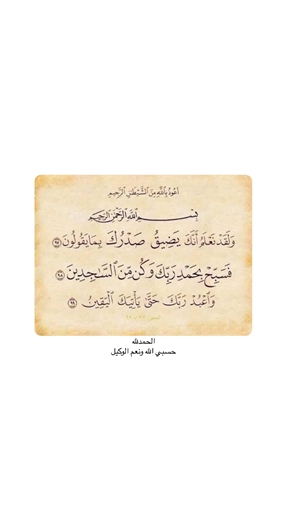 اعوذ بالله من الشيطن الرجيم
بسم الله الرحمن الرحيم
ولقد نعلم أنك يضيق صدرك بما يقولون ٩٧
فسبح بحمد ربك وكن من السجدين ٩٨
واعبد ربك حتى يأتيك اليقين ٩٩
الحمدلله
حسبي الله ونعم الوكيل